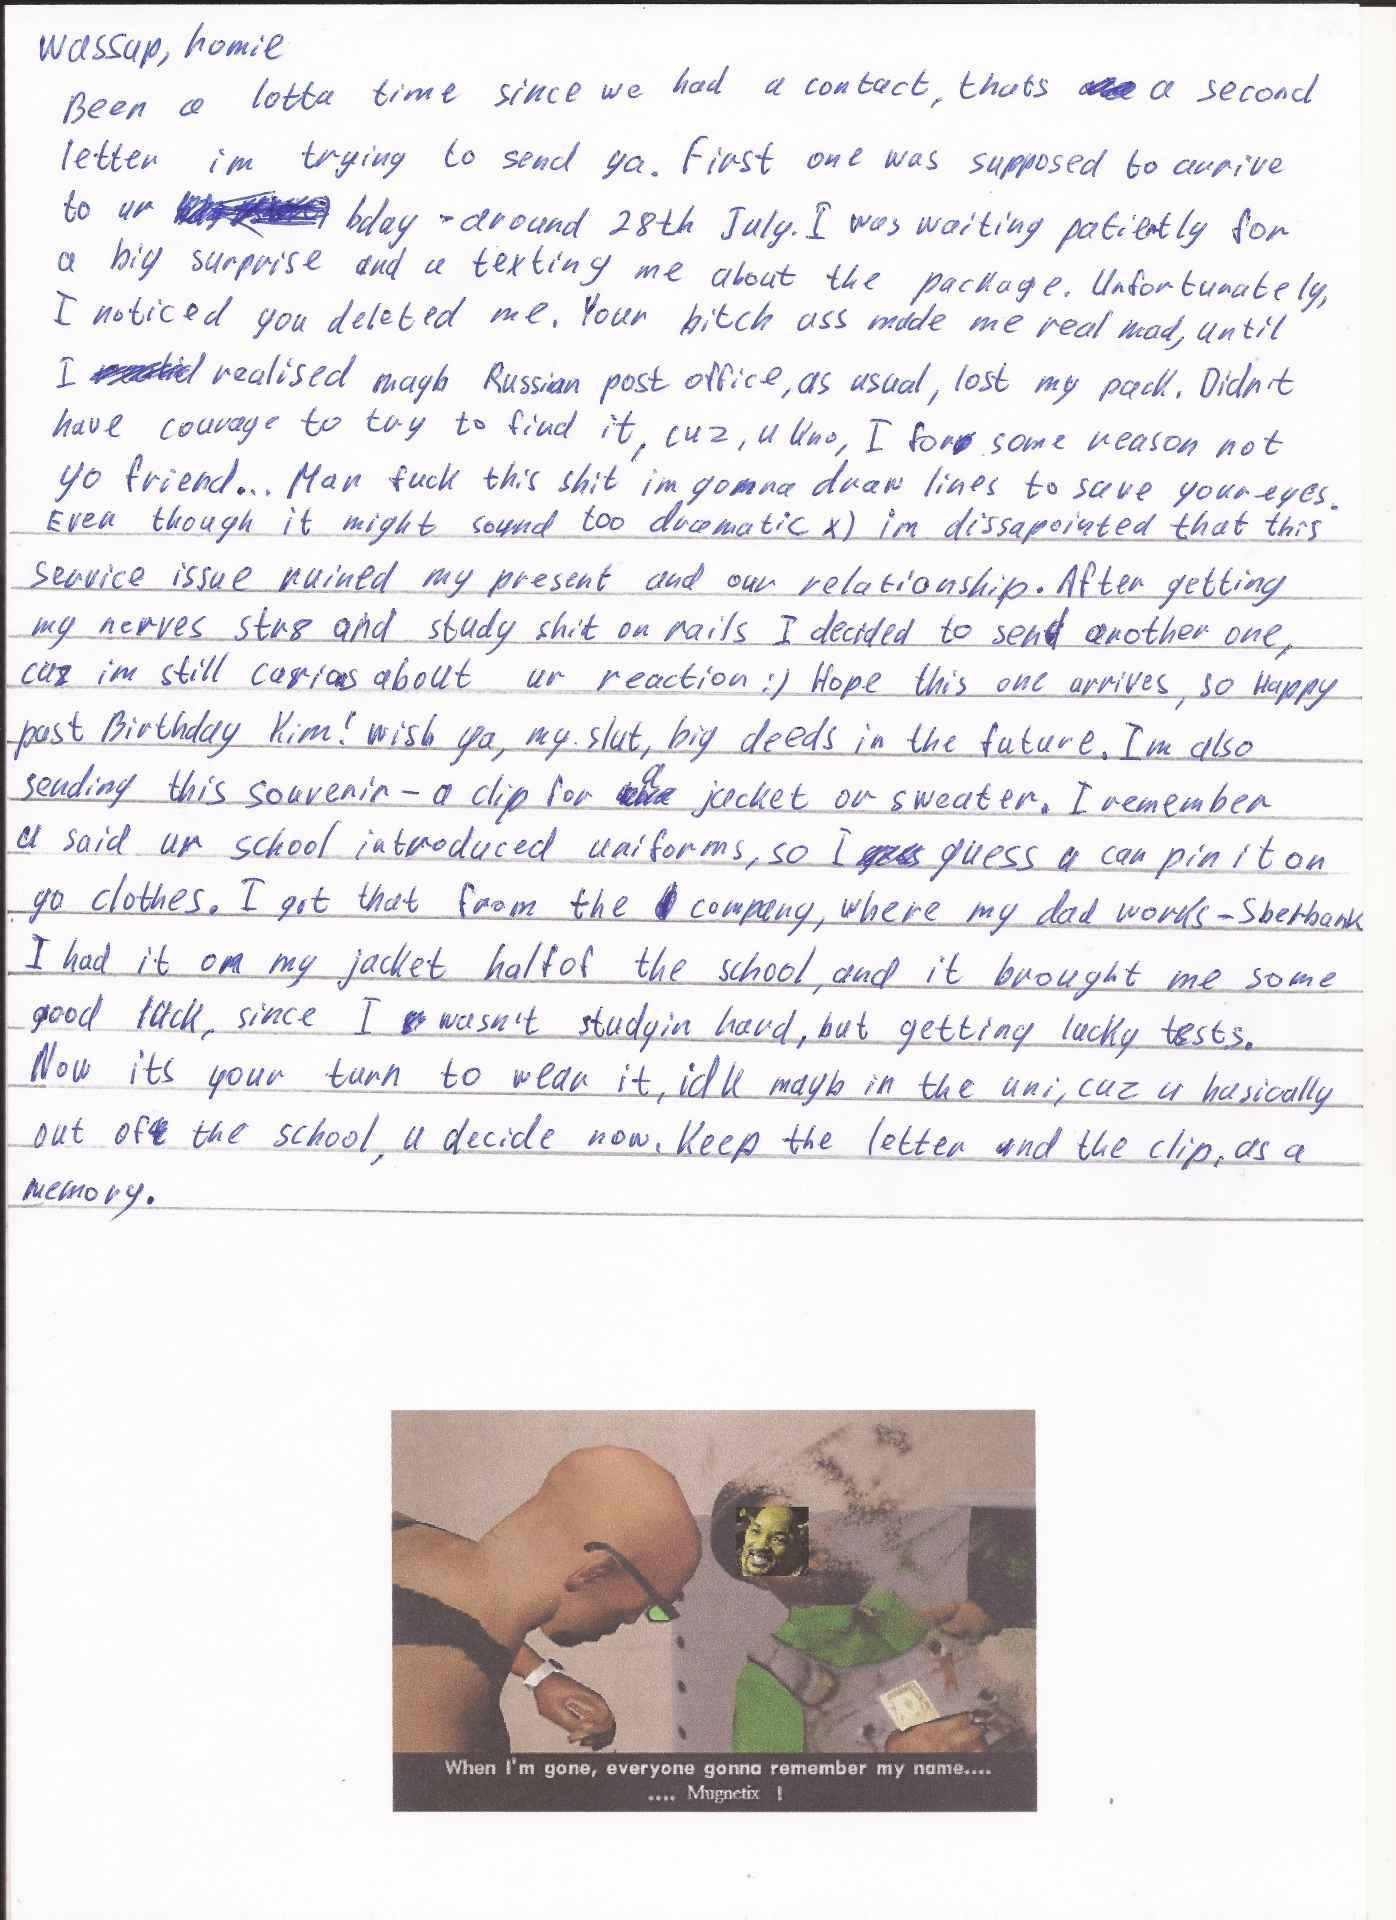 Wassup, homie
Been a lotta time since we had a contact, thats a second
letter im trying to send ya. First one was supposed to arrive
to ur bday - around 28th July. I was waiting patiently for
a big surprise and a texting me about the package. Unfortunately,
I noticed you deleted me. Your bitch ass made me real mad, until
I realised mayb Russian post office, as usual, lost my pack. Didn't
have courage to try to find it, cuz, u kno, I for some reason not
yo friend... Man fuck this shit im gonna draw lines to save your eyes.
Even though it might sound too dramatic x) im dissapointed that this
service issue ruined my present and our relationship. After getting
my nerves str8 and study shit on rails I decided to send another one,
cuz im still carios about ur reaction :) Hope this one arrives, so Happy
past Birthday Kim! wish ya, my slut, big deeds in the future. Im also
sending this souvenir - a clip for a jacket or sweater. I remember
u said ur school introduced uniforms, so I guess u can pin it on
yo clothes. I got that from the company, where my dad works - Sberbank
I had it on my jacket half of the school, and it brought me some
good luck, since I wasn't studyin hard, but getting lucky tests.
Now its your turn to wear it, idk mayb in the uni, cuz u basically
out of the school, u decide now. Keep the letter and the clip, as a
memory.
When I'm gone, everyone gonna remember my name....
.... Mugnetix !